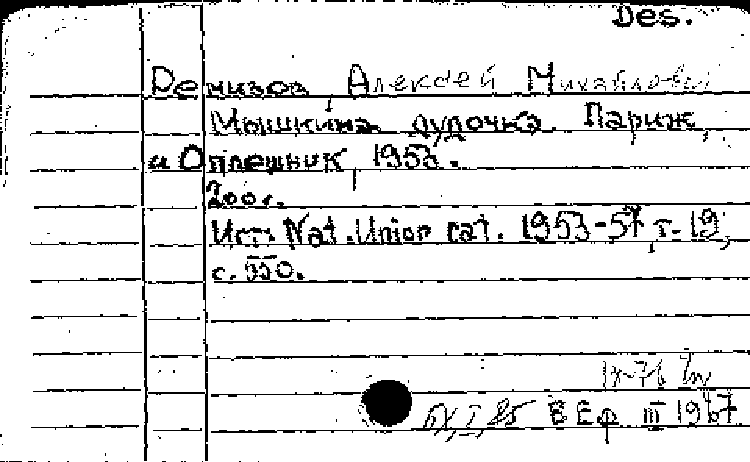 Des.
Ремизов, Алексей Михайлович
Мышкина дудочка. Париж,
"Оплешник, 1953.
200 с.
Ист: Nat. Union cat. 1953-57, т. 19,
с. 550.
IX-76
ВЕФ III 1967